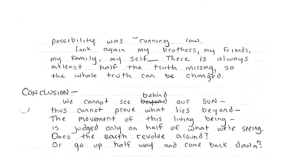 possibility was running low.
Look again my brothers, my friends,
my family, my self— There is always
atleast half the truth missng, so
the whole truth can be changed.
CONCLUSION—
behind
We cannot see beyond our SUN—
thus cannot prove what lies beyond—
The movement of this living being—
is judged only on half of what we're seeing.
Does the earth revolve around?
Or go up half way and come back down?